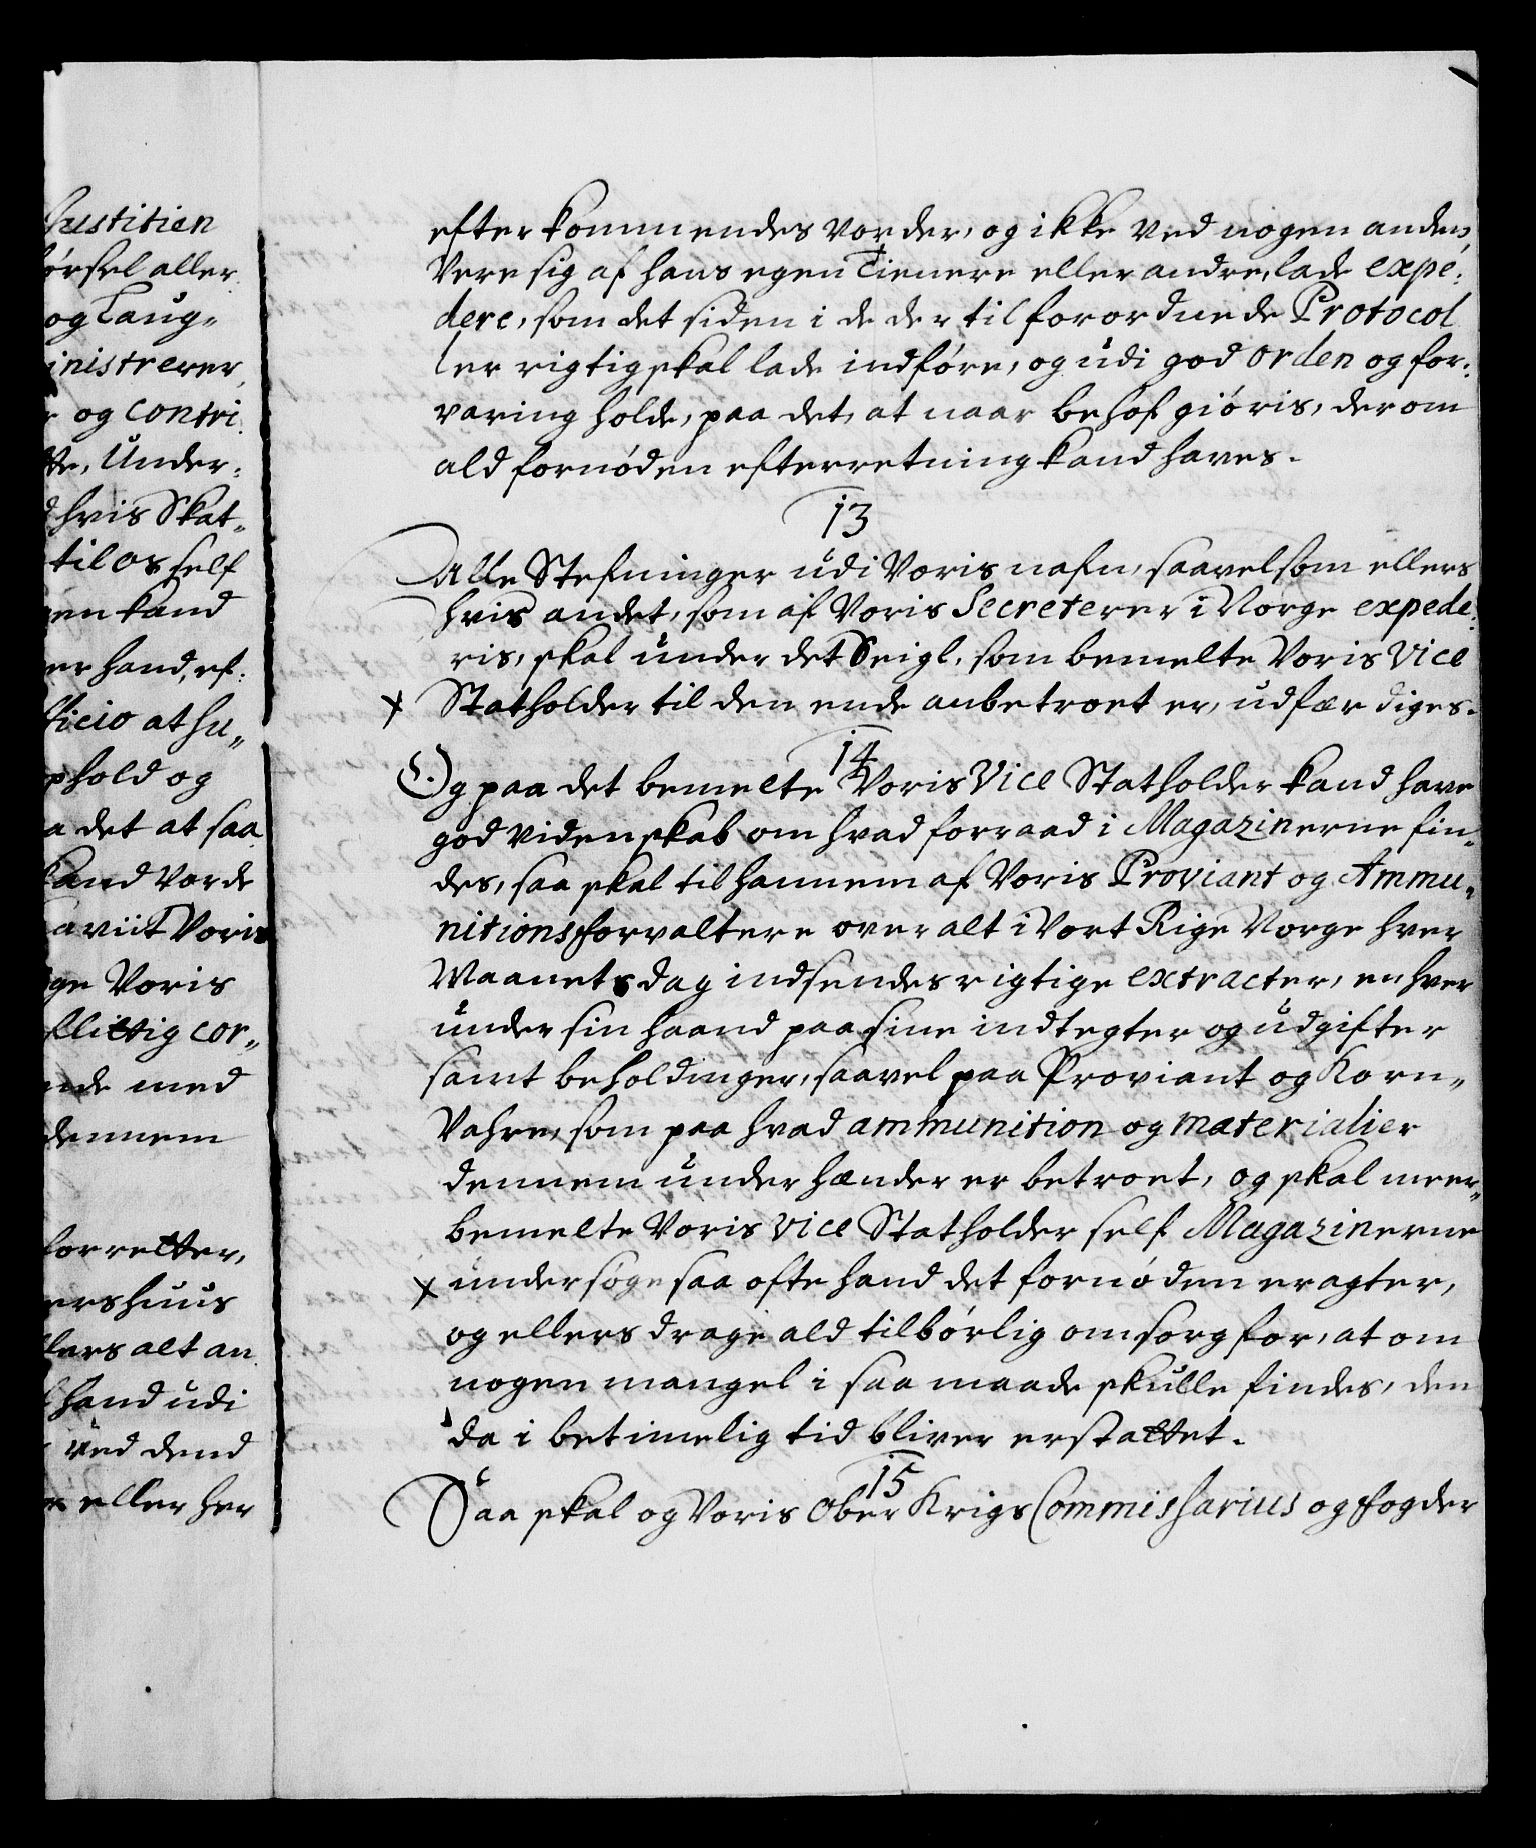 Justitien
ørsel aller
og Laug„
inistrerer
og contri
tte, Under„
hvis Skat„
til os self
en kand
er hand, ef„
ficio at hu„
phold og
a det at saa
kand vorde
aviit Voris
ge Voris
flittig cor„
nde med
dennem
forretter,
ershuus
lers alt an
hand udi
ved dend
eller her
efterkommendes vorder, og ikke ved nogen anden,
Vere sig af hans egen Tienere eller andre, lade expe„
dere, som det siden i de der til forordnede Protocol
ler rigtig skal lade indføre, og udi god orden og for„
varing holde, paa det, at naar behof giøris, der om
ald fornøden efterretning kand haves.
13
Alle Stefninger udi Voris nafn, saavelsom ellers
hvis andet, som af Voris Secreterer i Norge expede„
ris, skal under det Seigl, som bemelte Voris Vice
x Statholder til den ende anbetroet er, udfærdiges.
14
Og paa det bemelte Voris Vice Statholder kand have
god videnskab om hvad forraad i Magazinerne fin„
des, saa skal til hannem af Voris Proviant og Ammu„
nitionsforvaltere over alt i Vort Rige Norge hver
Maanets dag indsendes rigtige extracter, en hver
under sin haand paa sine indtegter og udgifter
samt beholdinger, saavel paa Proviant og Korn„
Vahre, som paa hvad ammunition og materialier
dennem under hænder er betroet, og skal meer„
bemelte Voris Vice Statholder self Magazinerne
x undersøge saa ofte hand det fornøden eragter,
og ellers drage ald tilbørlig omsorg for, at om
nogen mangel i saa maade skulle findes, den
da i betimelig tid bliver erstattet.
15
Saa skal og Voris Ober Krigs Commissarius og fogder